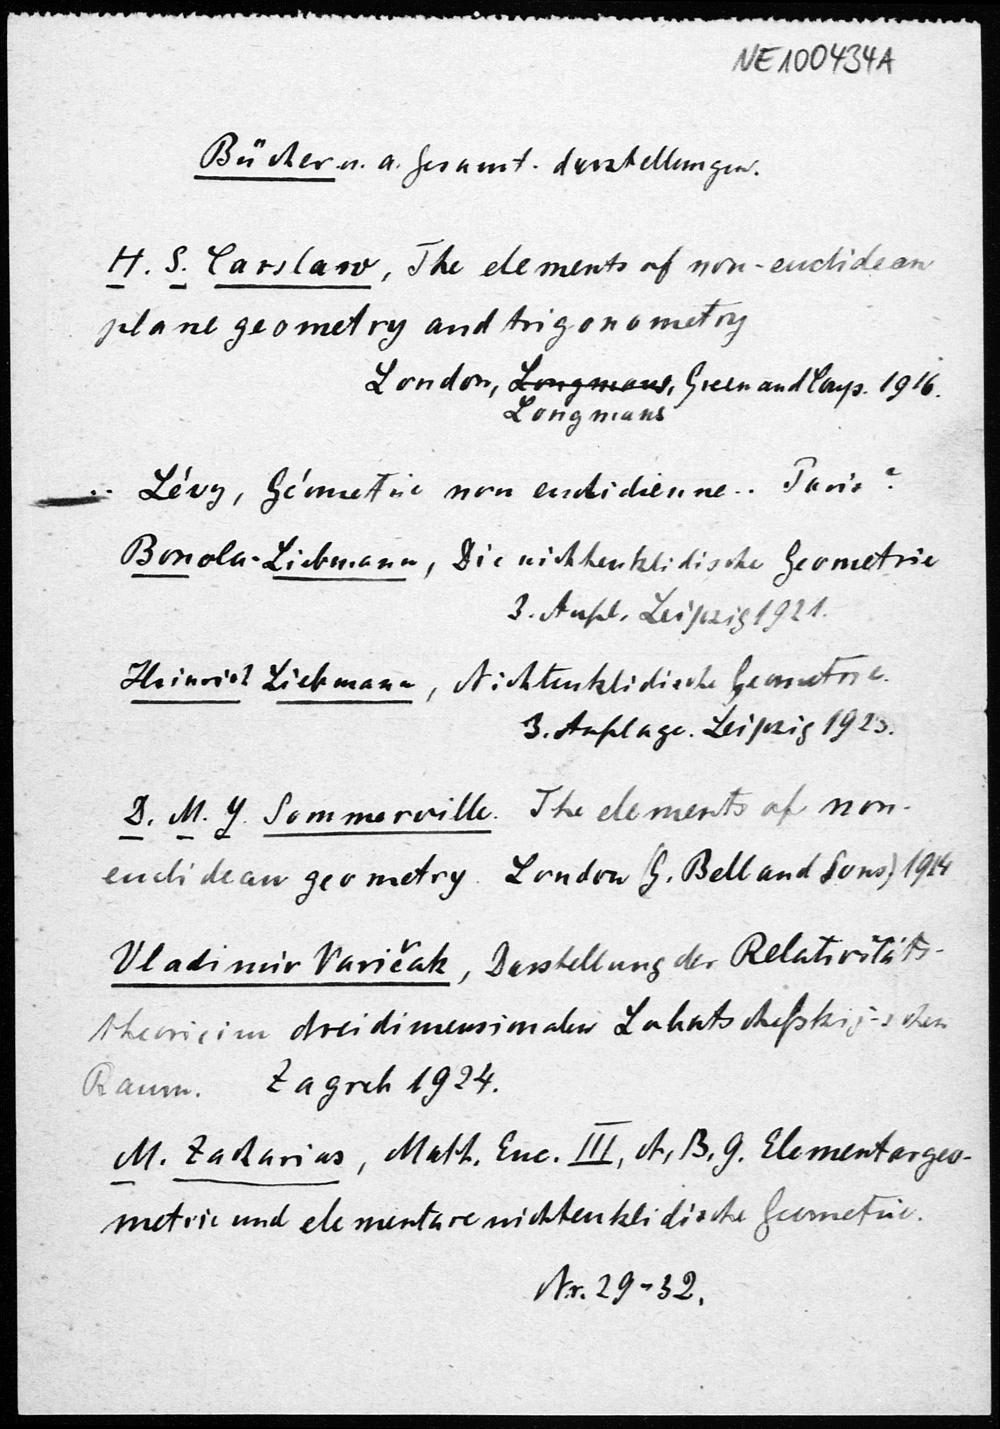 NE100434A
Bücher u. a. Gesamt-darstellungen.
H. S. Carslaw, The elements of non-euclidean
plane geometry and trigonometry
London, Longmans, Green and Comp. 1916.
Longmans
Lévy, Géometrie non euclidienne.. Paris?
Bonola-Liebmann, Die nichteuklidische Geometrie
3. Aufl. Leipzig 1921.
Heinrich Liebmann, Nichteuklidische Geometrie.
3. Auflage. Leipzig 1923.
D. M. Y. Sommerville. The elements of non-
euclidean geometry. London (G. Bell and Sons) 1914
Vladimir Varičak, Darstellung der Relativitäts-
theorie im dreidimensionalen Lobatschefskij-schen
Raum. Zagreb 1924.
M. Zacharias, Math. Enc. III, A, B, 9. Elementargeo-
metrie und elementare nichteuklidische Geometrie.
Nr. 29-32.